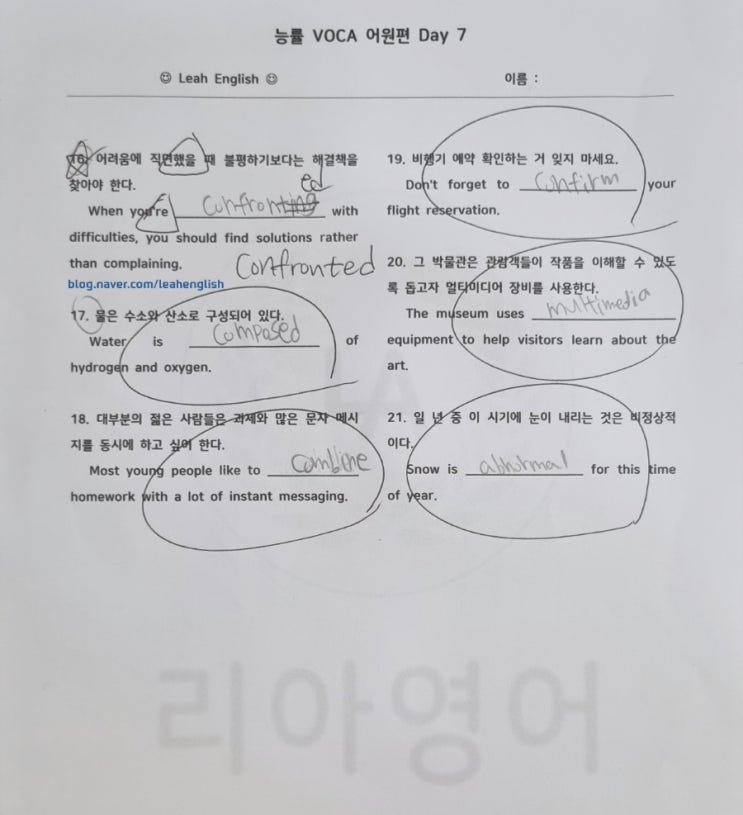 능률 VOCA 어원편 Day 7
☺ Leah English ☺ 이름 :
16. 어려움에 직면했을 때 불평하기보다는 해결책을
찾아야 한다.
ed
When you're confronting with
difficulties, you should find solutions rather
than complaining. Confronted
blog.naver.com/leahenglish
17. 물은 수소와 산소로 구성되어 있다.
Water is composed of
hydrogen and oxygen.
18. 대부분의 젊은 사람들은 과제와 많은 문자 메시
지를 동시에 하고 싶어 한다.
Most young people like to combine
homework with a lot of instant messaging.
19. 비행기 예약 확인하는 거 잊지 마세요.
Don't forget to confirm your
flight reservation.
20. 그 박물관은 관람객들이 작품을 이해할 수 있도
록 돕고자 멀티미디어 장비를 사용한다.
The museum uses multimedia
equipment to help visitors learn about the
art.
21. 일 년 중 이 시기에 눈이 내리는 것은 비정상적
이다.
Snow is abnormal for this time
of year.
리아영어